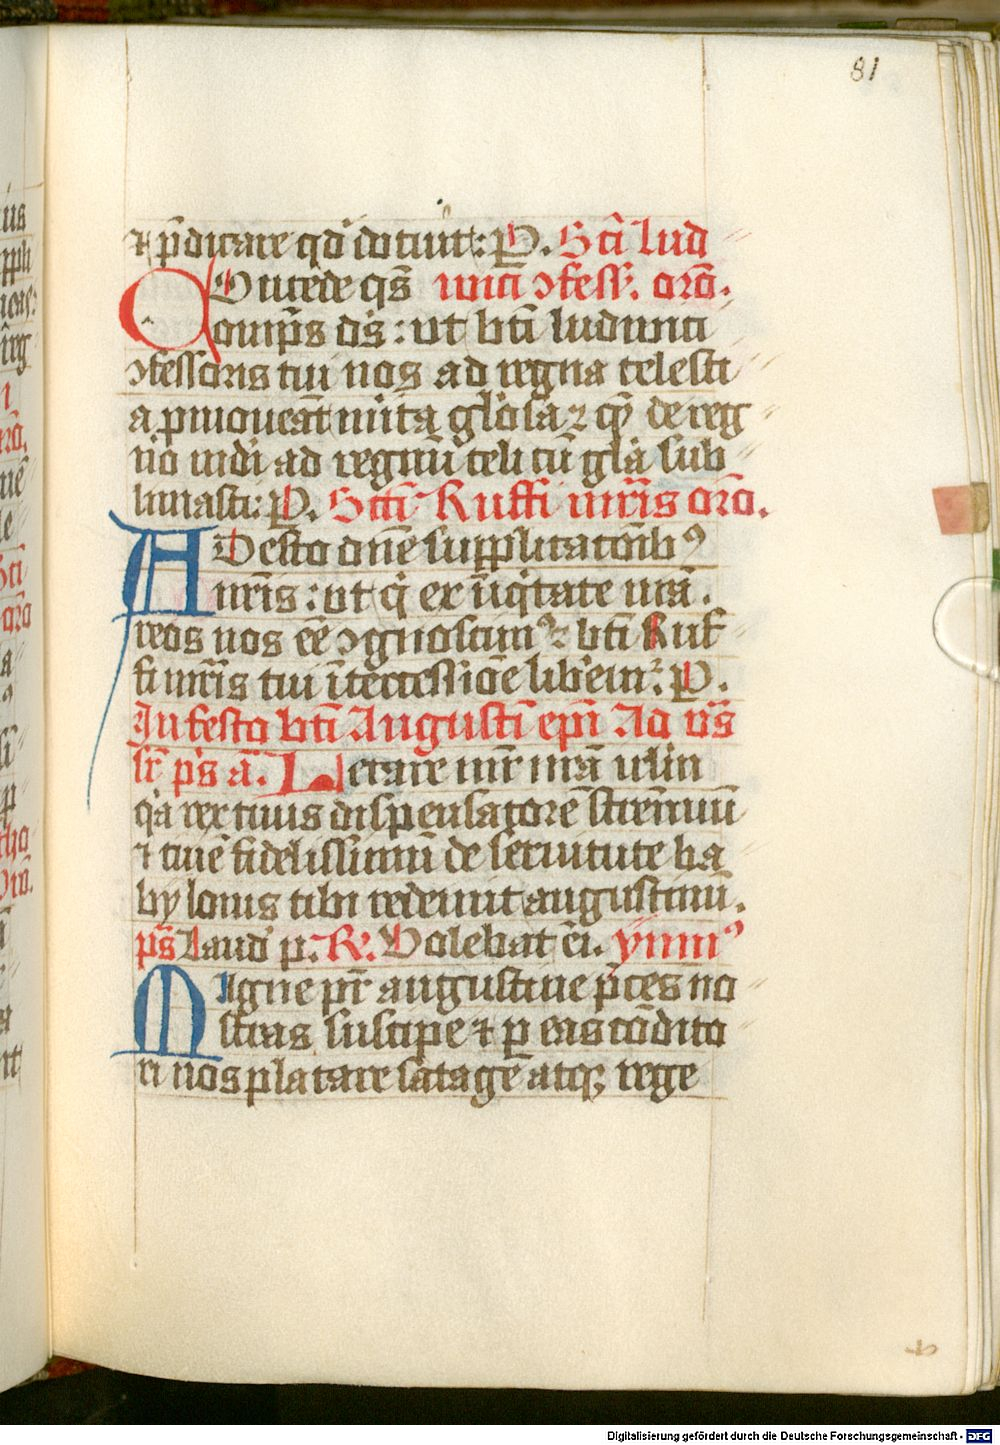 81
⁊ p̄dicare qd̉ docuit: P. Scī lud
Oncede qs̄ uici ↄfess̄. orō.
omp̄s ds̄: ut bt̄i luduuici
ↄfessoris tui nos ad regna celesti
a ꝓmoueāt mīta gl̓osa ⁊ qͥ de reg
no mdi ad regnū celi cū gl̓a sub
limasti: P. Sctī Ruffi mr̄is orō.
Adesto dn̄e supplicatōib⁹
nr̄is: ut qͥ ex īiqͥtate nrā.
reos nos eē ↄgnoscim⁹ ⁊ bt̄i Ruf
fi mr̄is tui īt̓cessiōe lib̓emr̉. P.
In festo bt̄i Augustī epī Ad vs̄
sr̄ ps̄ a̅. Letare mr̄ nrā ih̓rlm
qͥa rex tuus dispensatorē strēnuū
⁊ ciuē fidelissimū de seruitute ba
bylonis tibi redemit augustinū.
ps̄ Laud̓ p. R. Volebat ei. ymn⁹
Magne pr̄ augustine p̄ces no
stras suscipe ⁊ ꝑ eas cōdito
ri nos placare satagē atqꝫ rege
Digitalisierung gefördert durch die Deutsche Forschungsgemeinschaft - DFG